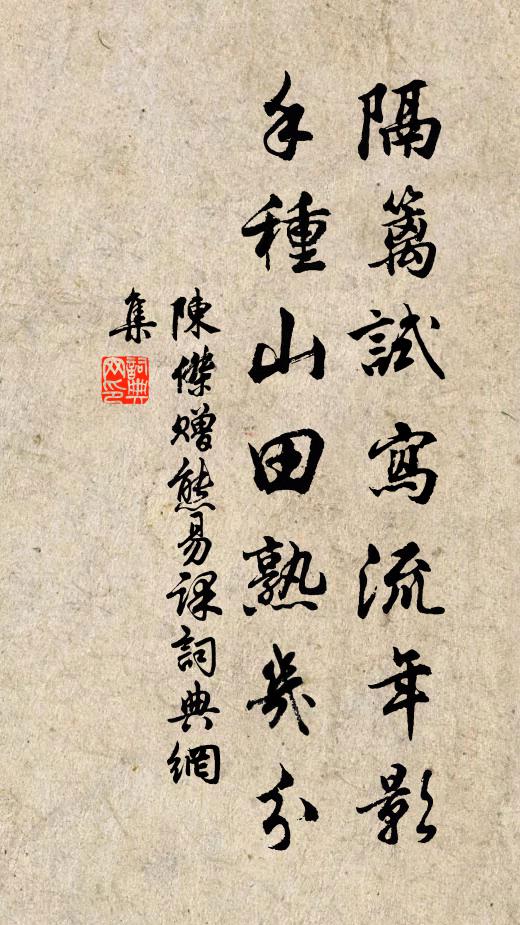 隔籬試寫流年影
手種山田熟幾分
陳傑贈熊易課詞典網
集
詞典
网印